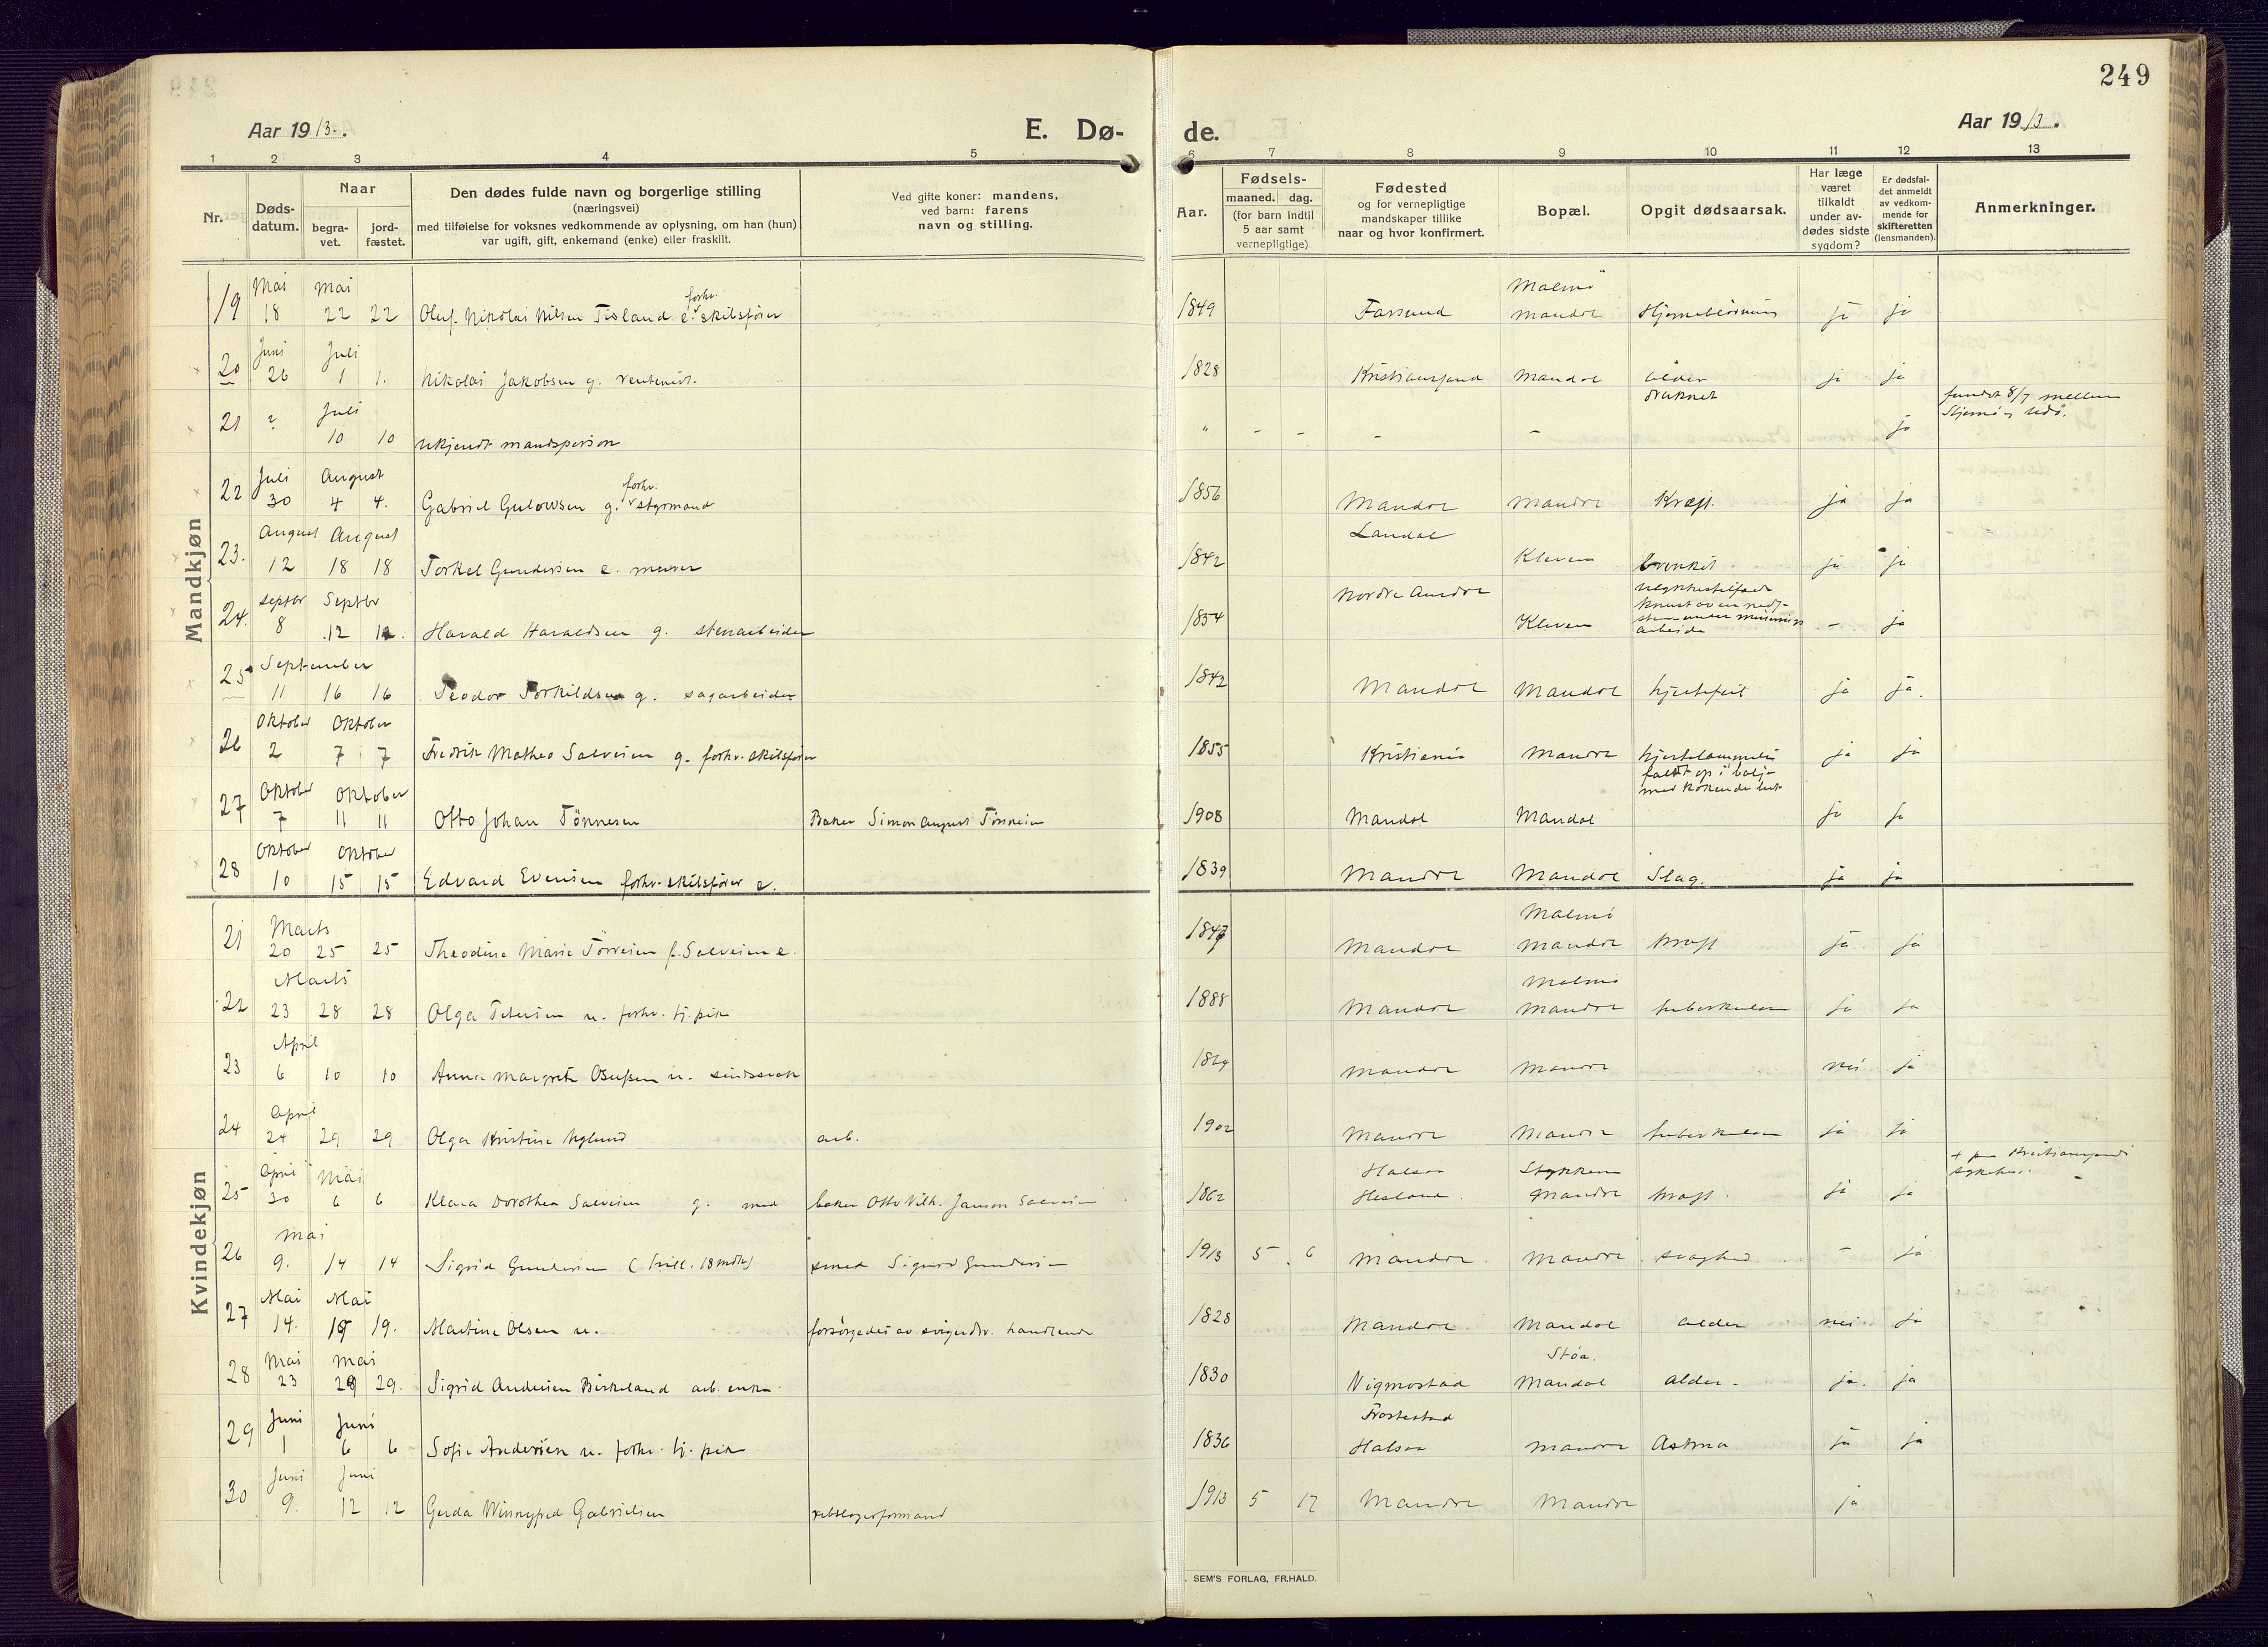 249
Aar 1913.
E. Dø-
de.
Aar 1913.
1 2 3 4 5 6 7 8 9 10 11 12 13
Nr.
Døds-
datum.
Naar
begra-
vet.
jord-
fæstet.
Den dødes fulde navn og borgerlige stilling
(næringsvei)
med tilføielse for voksnes vedkommende av oplysning, om han (hun)
var ugift, gift, enkemand (enke) eller fraskilt.
Ved gifte koner: mandens,
ved barn: farens
navn og stilling.
Aar.
Fødsels-
maaned. dag.
(for barn indtil
5 aar samt
vernepligtige)
Fødested
og for vernepligtige
mandskaper tillike
naar og hvor konfirmert.
Bopæl.
Opgit dødsaarsak.
Har læge
været
tilkaldt
under av-
dødes sidste
sygdom?
Er dødsfal-
det anmeldt
av vedkom-
mende for
skifteretten
(lensmanden).
Anmerkninger.
Mandkjøn
Mai mai Malmö
19 18 22 22 Oluf Nikolai Nilsen Tisland e. forhv. skibsfører 1849 Farsund Mandal ja ja
Juni Juli
20 26 1 1. Nikolai Jakobsen g. rentenist. 1828 Kristianssand Mandal alder ja ja
Juli druknet fundet 8/7 mellem
21 ? 10 10 ukjendt mandsperson " - - - - ja
Juli August
22 30 4 4. Gabriel Gulowsen g. forhv. styrmand 1856 Mandal Mandal Kræft. ja ja
August August Landal
23. 12 18 18 Torkel Gundersen e. murer 1842 Kleven ja ja
Septbr Septbr Nordre Aurdal
24. 8 12 12. Harald Haraldsen g. stenarbeider 1854 Kleven - ja
arbeide
September
25 11 16 16 Teodor Torkildsen g. sagarbeider 1842 Mandal Mandal hjertefeil ja ja.
Oktober Oktober
26 2 7 7 Fredrik Matheo Salvesen g. forhv. skibsfører 1855 Kristiania Mandal hjertelammelse ja ja
Oktober Oktober faldt op i balje
med kokende lut
27 7 11 11 Otto Johan Tönnesen Baker Simon August Tönnesen 1908 Mandal Mandal ja ja
Oktober Oktober
28 10 15 15 Edvard Evensen forhv. skibsfører e. 1839 Mandal Mandal Slag. ja ja
Kvindekjøn
Marts Malmö
21 20 25 25 Theodine Marie f. Salvesen e. 1847 Mandal Mandal kræft ja ja
Marts Malmö
22 23 28 28 Olga Petersen u. forhv. tj. pike 1888 Mandal Mandal tuberkulose ja ja
April
23 6 10 10 Anna Margrete Osufsen u. sindssvak 1864 Mandal Mandal nei ja
April
24 24 29 29 Olga Kristine Nylund arb. 1902 Mandal Mandal tuberkulose ja ja
April Mai Halsaa + paa Kristianssands
sykehus.
25 30 6 6 Klara Dorothea Salvesen g. med baker Otto Vilh. Janson Salvesen 1862 Mandal kræft. ja ja
Mai
26 9. 14 14 Sigrid Gundersen (tvill. 18 mdk) smed Sigurd Gundersen 1913 5 6 Mandal Mandal svaghed - ja
Mai Mai
27 14. 19 19. Martine Olsen u. forsörgedes av svigerdtr. handlende 1828 Mandal Mandal alder nei ja
Mai Mai Stöa.
28 23 29 29. Sigrid Andersen Birkeland arb. enke 1830 Vigmostad Mandal alder ja. ja
Juni Juni Frostestad
29 1 6 6 Sofie Andersen u. forhv. tj. pike 1836 Halsaa Mandal Astma ja ja
Juni Juni
30 9. 12 12 Gerda Gabrielsen rebslagerformand 1913 5 17 Mandal Mandal ja
SEM'S FORLAG, FR.HALD.